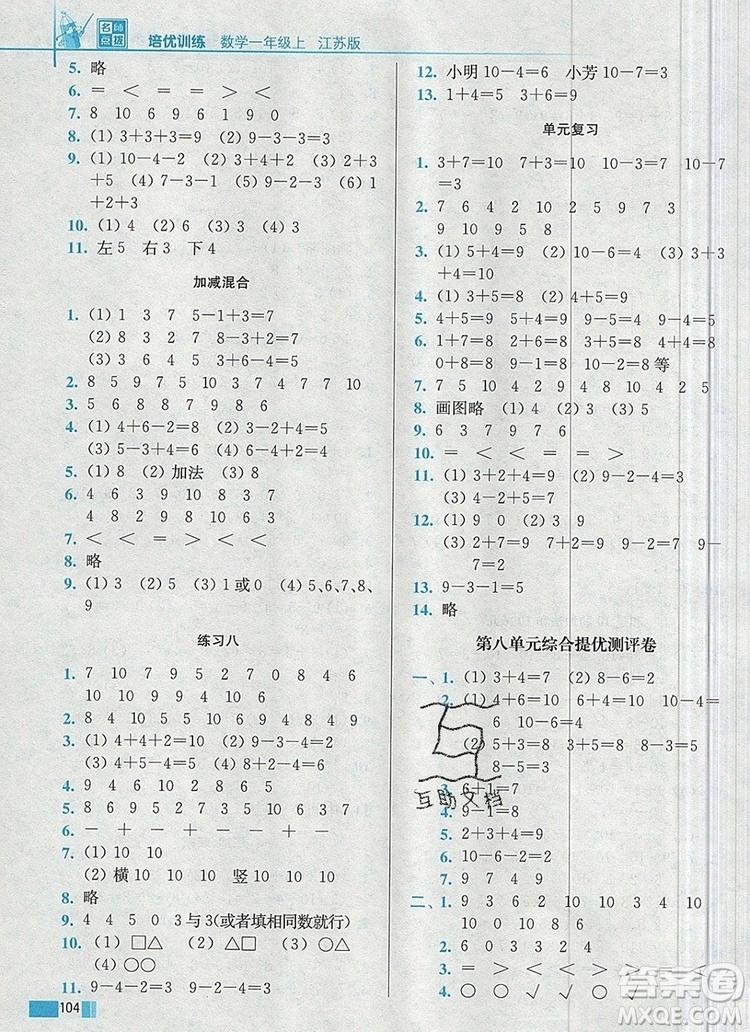 名师点拨 培优训练 数学一年级上 江苏版
5. 略
6. = < = = > <
7. 8 10 6 9 6 1 9 0
8. (1) 3+3+3=9 (2) 9-3-3=3
9. (1) 10-4-2 (2) 3+4+2 (3) 2+3
+5 (4) 7-5-2 (5) 9-2-3 (6) 1+
2+3+2
10. (1) 4 (2) 6 (3) 3 (4) 3
11. 左5 右3 下4
加减混合
1. (1) 1 3 7 5-1+3=7
(2) 8 3 2 7 8-3+2=7
(3) 3 6 4 5 3+6-4=5
2. 8 5 9 7 5 10 3 7 4 7 7 10
3. 5 6 8 8 7 9 8 6
4. (1) 4+6-2=8 (2) 4-2+3=5
(3) 5-3+4=6 (4) 6-5+3=4
5. (1) 8 (2) 加法 (3) 8
6. 4 6 3 9 10 4 8 3 7
4 8 2 9 8 9 10 8 0
7. < < = > = <
8. 略
9. (1) 3 (2) 5 (3) 1或0 (4) 5、6、7、8、
9
练习八
1. 7 10 7 9 5 2 7 0 8 4 6
10 9 8 8 4 9 6 6 6 7
2. 8 8 3 4 4 9 10 6 8 4 9
3. (1) 4+4+2=10 (2) 9-4-3=2
(3) 4+5-4=5 (4) 8-4+2=6
4. 9 4 6 10 2 8 6 5
5. 8 6 9 5 2 7 5 3 8 6 10 9
6. - + - + - +
7. (1) 10 10
(2) 横10 10 10 竖10 10 10
8. 略
9. 4 4 5 0 3与3(或者填相同数就行)
10. (1) □△ (2) △□ (3) ○△
(4) ○○
11. 9-4-2=3 9-2-4=3
104
12. 小明10-4=6 小芳10-3=7
13. 1+4=5 3+6=9
单元复习
1. 3+7=10 7+3=10 10-3=7 10-7
=3
2. 7 6 4 2 10 2 5 9 7 3
9 10 9 5 8
3. (1) 5+4=9 (2) 10-6=4 (3) 2+4
+4=10
4. 6+1=7 6+4=10 10-2=8
5. 4+5=9 5+4=9 9-5=4 9-4=5
6. 1+7=8 2+6=8 3+5=8 4+4=8
0+8=8 9-1=8 10-2=8等
7. 7 5 10 4 2 9 4 8 10 8 5 9
8. 画图略 (1) 4 (2) 2 (3) 5
9. 6 3 7 9 7 6
10. = < = < > >
11. (1) 3+2+4=9 (2) 9-4-2=3
(3) 4-2+5=7
12. (1) 9 0 (2) 3 9
(3) 2+7=9 7+2=9 9-2=7 9-
7=2
13. 9-3-1=5
14. 略
第八单元综合提优测评卷
一、1. (1) 3+4=7 (2) 8-6=2
2. (1) 4+6=10 6+4=10 10-4=
6 10-6=4
(2) 5+3=8 3+5=8 8-3=5
8-5=3
3. 6+1=7
4. 9-1=8
5. 2+3+4=9
6. 10-6-2=2
7. 9 7 4 9
二、1. 9 3 6 2 10 1 9 8
2. 6 0 3 3 2 4
3. = > < > < >
4. ○ ○ √ √ ○ √
互助文档
答案圈
MXQE.COM